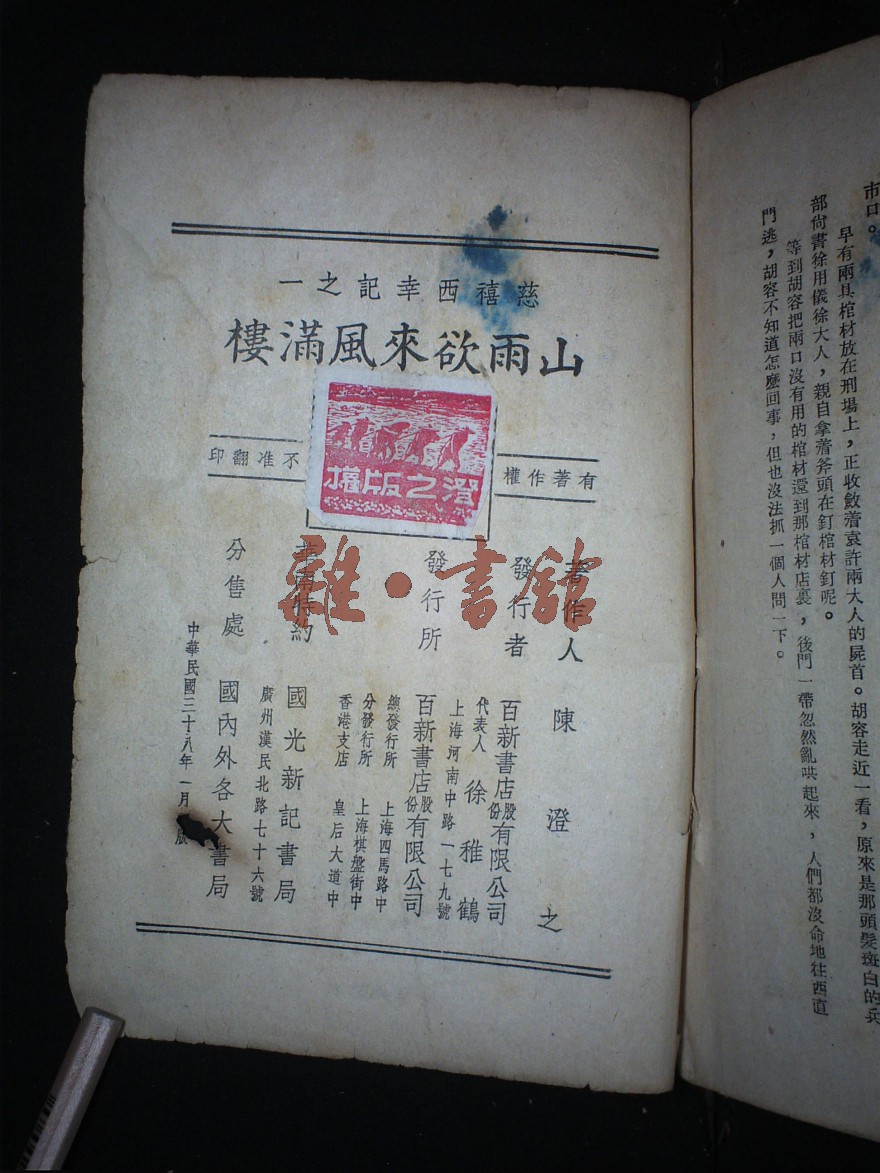 慈禧西幸記之一
山雨欲來風滿樓
有著作權
不准翻印
澄之版權
著作人 陳澄之
發行者 百新書店股份有限公司
代表人 徐稚鶴
上海河南中路一七九號
發行所 百新書店股份有限公司
總發行所 上海四馬路中
分發行所 上海棋盤街中
香港支店 皇后大道中
華南特約 國光新記書局
廣州漢民北路七十六號
分售處 國內外各大書局
中華民國三十八年一月 版
雜·書館
市口。
早有兩具棺材放在刑場上，正收斂着袁許兩大人的屍首。胡容走近一看，原來是那頭髮斑白的兵
部尙書徐用儀徐大人，親自拿着斧頭在釘棺材釘呢。
等到胡容把兩口沒有用的棺材還到那棺材店裏，後門一帶忽然亂哄起來，人們都沒命地往西直
門逃，胡容不知道怎麼回事，但也沒法抓一個人問一下。